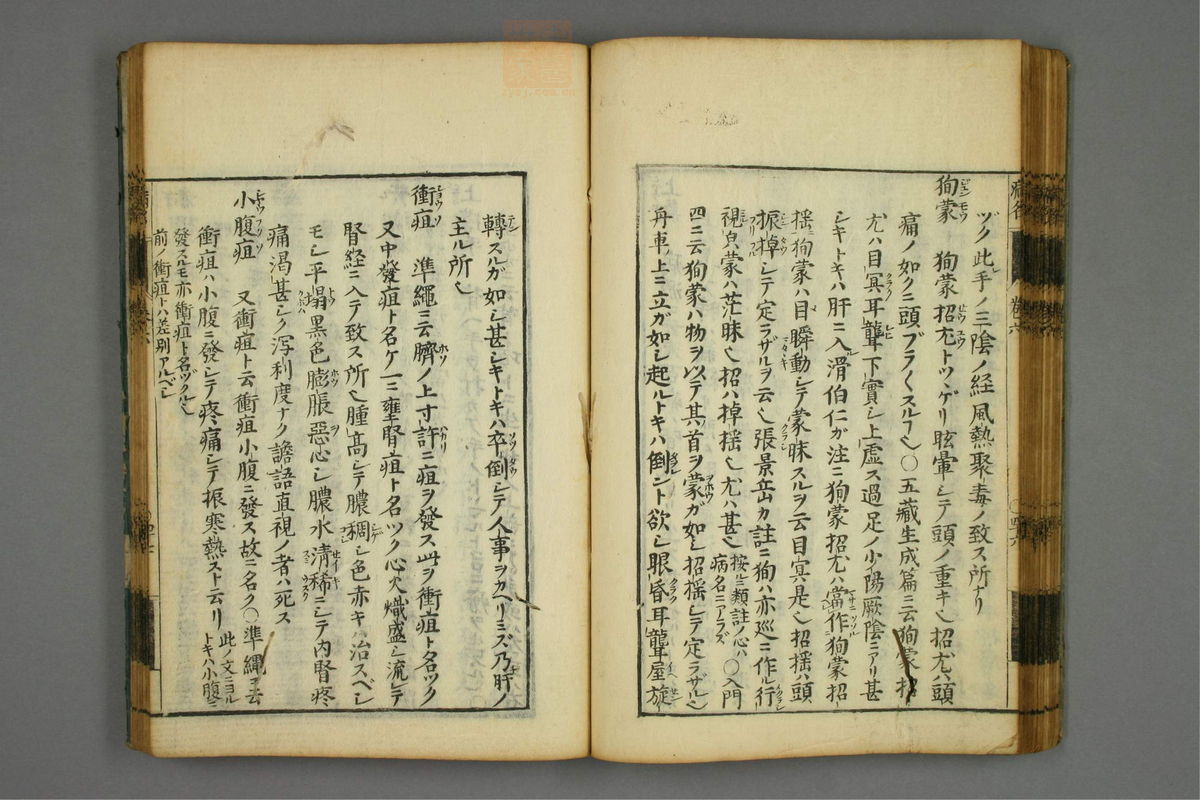 ヅク此手ノ三陰ノ経風熱聚毒ノ致ス所ナリ
狥蒙 狥蒙招尤トツヾゲリ眩暈シテ頭ノ重キ也招尤ハ頭
痛ノ如クニ頭ブラ〱スル也〇五藏生成篇ニ云狥蒙招
尤ハ目冥耳聾下實シ上虚ス過足ノ少陽厥陰ニアリ甚
シキトキハ肝ニ入滑伯仁ガ注ニ狥蒙招尤ハ當作狥蒙招
揺狥蒙ハ目瞬動シテ蒙昧スルヲ云目冥是也招揺ハ頭
振掉シテ定ラザルヲ云也張景岳カ註ニ狥ハ亦巡ニ作ル行
視皃蒙ハ茫昧也招ハ掉揺也尤ハ甚也按ルニ類註ノ心ハ病名ニアラズ〇入門
四ニ云狥蒙ハ物ヲ以テ其首ヲ蒙ガ如シ招揺シテ定ラザル也
舟車ノ上ニ立ガ如シ起ルトキハ倒ント欲シ眼昏耳聾屋旋
轉スルガ如シ甚シキトキハ卒倒シテ人事ヲカヘリミズ乃肝ノ
主ル所也
衝疽 準繩ニ云臍ノ上寸許ニ疽ヲ發ス此ヲ衝疽ト名ツク
又中發疽ト名ケ一ニ壅腎疽ト名ツク心火熾盛シ流レテ
腎経ニ入テ致ス所也腫高シテ膿稠シ色赤キハ治スベシ
モシ平塌黒色膨脹惡心シ膿水清稀ニシテ内腎疼
痛渇甚シク瀉利度ナク譫語直視ノ者ハ死ス
小腹疽 又衝疽ト云衝疽小腹ニ發ス故ニ名ク〇準繩ニ云
衝疽ハ小腹ニ發シテ疼痛シテ振寒熱スト云リ此ノ文ニヨルトキハ小腹ニ
發スルモ亦衝疽ト名ツクル也
前ノ衝疽トハ差別アルベシ